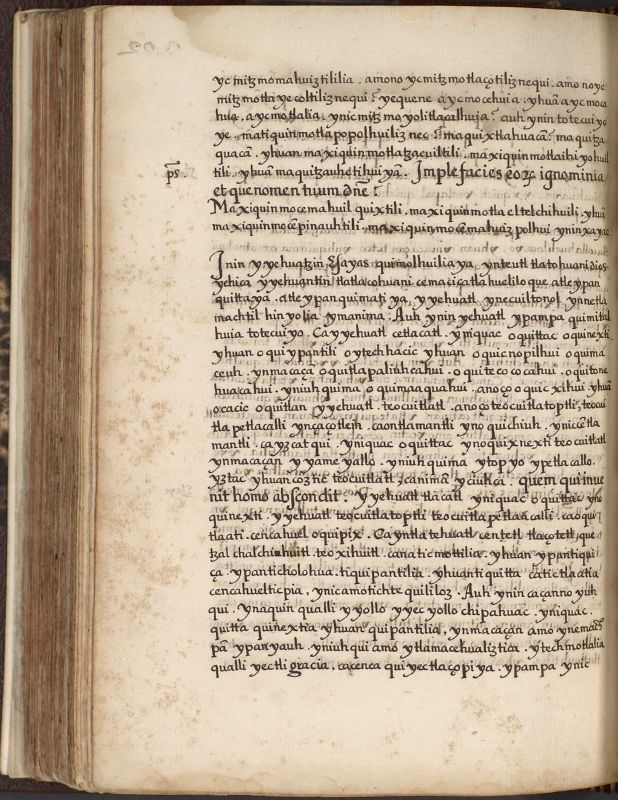 302
yc mitzmomahuiztililia. amono yc mitzmotlaçotiliznequi. amo no yc
mitzmotlayecoltiliznequi? yequene ayc mocehuia. yhuã ayc moca
hua, ayc motlalia. ynic mitzmoyolitlacalhuia? auh ynin totecuiyo
ye. ma tiquinmotlapopolhuiliz nec? ma quixtlahuacã? ma quitza
quacã. yhuan maxiquinmotlatzacuiltili. maxiquinmotlaihiyohuil
tili. yhuã ma quitzauhctihuiyã. Imple facies eorȝ ignominia
ps.
et quenomentuum dñe?
Ma xiquinmocemahuilquixtili. maxiquinmotlaeltelchihuili. yhuã
maxiquinmocẽpinauhtili. maxiquinmocemahuizpolhui yninxayac
Inin yyehuatzin Esayas quimolhuiliaya, ynteutl tlatohuani dios
yehica yyehuantin tlatlacohuani cemacicatlahueliloque atle ypan
quittaya. atle ypan quimatiya, yyehuatl ynecuiltonol ynnetla
machtil hin yolia ymanima. Auh ynin yehuatl ypampa quimital
huia totecuiyo. Ca yyehuatl ce tlacatl. yniquac oquittac oquinexti,
yhuan oquipantili oytechhacic yhuan oquicnopilhui oquima
ceuh. ynmacaça oquitlapalihhcahui. oquitecococahui. oquitone
huacahui. yniuh quima oquimaquahui. anoço oquicxihui. yhuã
ocacic oquitlan yyehuatl. teocuitlatl. anoço teocuitlatoptli, teocui
tlapetlacalli ynçaçotlejn. caontlamantli yno quichiuh. ynic cẽtla
mantli. ca yzcatqui. yniquac oquittac ynoquixnexti teocuitlatl
ynmacaçan yyameyallo. yniuhquima ytopyo ypetlacallo.
yztac yhuan coztic teocuitlatl ycanima yciutica. quem qui inue
nit homo abscondit. Yyehuatl tlacatl yniquac oquittac yno
quinexti. yyehuatl teocuitlatoptli teocuitlapetlacalli. ca oqui
tlaati. cencahuel oquipix. Ca yntla tehuatl centetl tlaçotetl, que
tzalchalchihuitl teoxihuitl. canaticmottilia. yhuan ypantiqui
ça. ypantichcholohua. tiquipantilia. yhuan tiquitta catictlacatia
cencahueltic pia, ynicamotichtequililoz. Auh ynin caçanno yuh
qui. ynaquin qualli yyollo yyecyollo chipahuac. yniquac.
quitta quinextia yhuan quipantilia, ynmacaçan amo ynemach
pã ypanyauh. yniuhqui amo ytlamacehualiztica. ytechmotlalia
qualli yectli gracia, cacenca quiyectlaçopiya. ypampa ynic